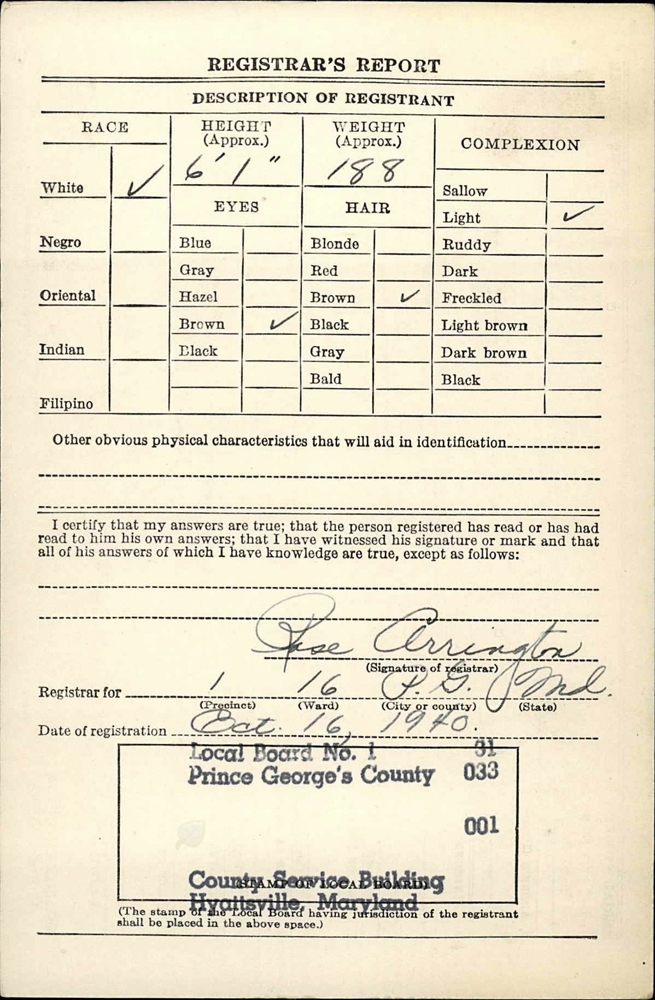 REGISTRAR'S REPORT
DESCRIPTION OF REGISTRANT
RACE
HEIGHT
(Approx.)
WEIGHT
(Approx.)
COMPLEXION
6' 1"
188
White ✓
Sallow
EYES
HAIR
Light ✓
Negro
Blue
Blonde
Ruddy
Gray
Red
Dark
Oriental
Hazel
Brown ✓
Freckled
Brown ✓
Black
Light brown
Indian
Black
Gray
Dark brown
Bald
Black
Filipino
Other obvious physical characteristics that will aid in identification
I certify that my answers are true; that the person registered has read or has had
read to him his own answers; that I have witnessed his signature or mark and that
all of his answers of which I have knowledge are true, except as follows:
Rose Arrington
(Signature of registrar)
Registrar for 1 16 P. G. Md.
(Precinct) (Ward) (City or county) (State)
Date of registration Oct. 16, 1940.
Local Board No. 1 31
Prince George's County 033
001
County Service Building
(STAMP OF LOCAL BOARD)
Hyattsville, Maryland
(The stamp of the Local Board having jurisdiction of the registrant
shall be placed in the above space.)